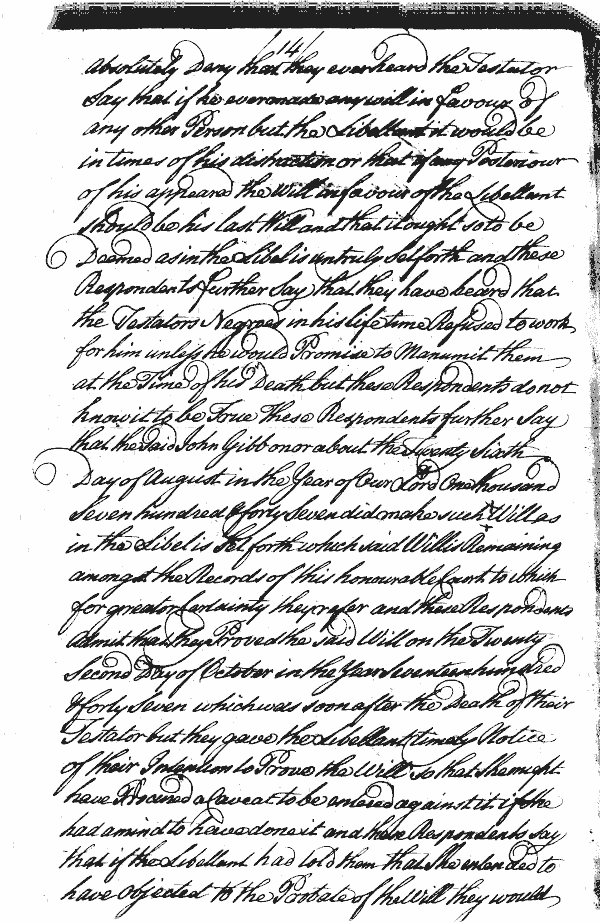 14
absolutely Deny that they ever heard the Testator
Say that if he ever made any will in favour of
any other Person but the Libellant it would be
in times of his distraction or that if any Posteriour
of his appeared the Will in favour of the Libellant
should be his last Will and that it ought so to be
Deemed as in the Libel is untruly set forth and these
Respondents further Say that they have heard that
the Testators Negroes in his life time Refused to work
for him unless he would Promise to Manumit them
at the Time of his Death but these Respondents do not
know it to be True These Respondents further Say
that the said John Gibb on or about the Twenty Sixth
Day of August in the Year of Our Lord One thousand
Seven hundred & forty Seven did make such Will as
in the Libel is Set forth which said Will is Remaining
amongst the Records of this honourable Court to which
for greater Certainty they refer and these Respondents
admit that they Proved the said Will on the Twenty
Second Day of October in the Year Seventeen hundred
& forty Seven which was soon after the Death of their
Testator but they gave the Libellant timely Notice
of their Intention to Prove the Will so that She might
have Procured a Caveat to be entered against it if She
had a mind to have done it and these Respondents say
that if the Libellant had told them that She intended to
have Objected to the Probate of the Will they would